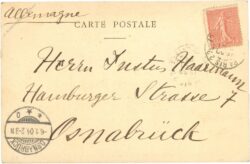 Allemagne
CARTE POSTALE
Herrn Justus Haarmann
Hamburger Strasse 7
Osnabrück
OSNABRÜCK